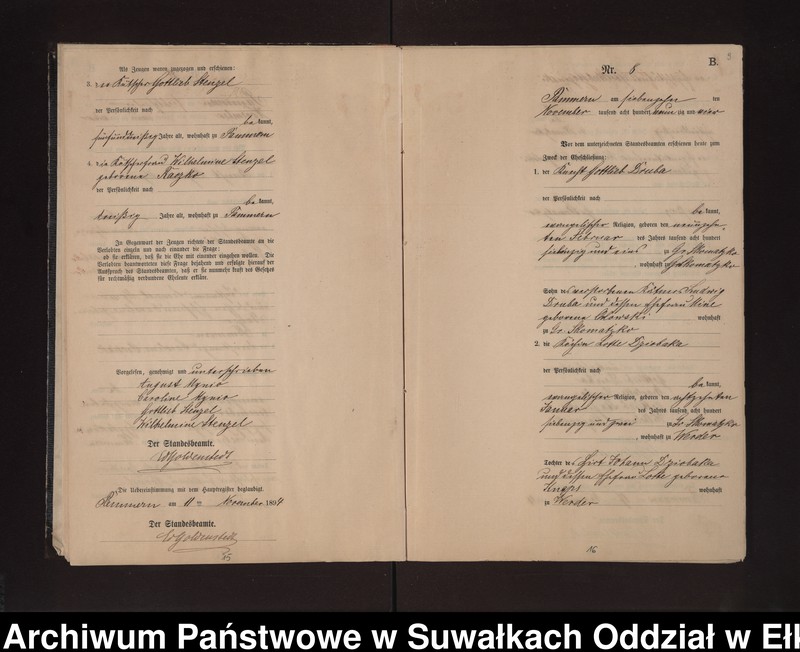 Als Zeugen waren zugezogen und erschienen:
3. der Kutscher Gottlieb Stenzel
der Persönlichkeit nach
bekannt,
fünfunddreißig Jahre alt, wohnhaft zu
4. die Kutscherfrau Wilhelmine Stenzel
geborene Raczko
der Persönlichkeit nach
bekannt,
dreißig Jahre alt, wohnhaft zu
In Gegenwart der Zeugen richtete der Standesbeamte an die
Verlobten einzeln und nach einander die Frage:
ob sie erklären, daß sie die Ehe mit einander eingehen wollen. Die
Verlobten beantworteten diese Frage bejahend und erfolgte hierauf der
Ausspruch des Standesbeamten, daß er sie nunmehr kraft des Gesetzes
für rechtmäßig verbundene Eheleute erkläre.
Vorgelesen, genehmigt und unterschrieben
August
Caroline
Gottlieb Stenzel
Wilhelmine Stenzel
Der Standesbeamte.
Goldenstedt
Die Uebereinstimmung mit dem Hauptregister beglaubigt.
am 11ten November 1894
Der Standesbeamte.
Goldenstedt
B.
Nr. 8
am siebenzehn ten
November tausend acht hundert neun zig und vier
Vor dem unterzeichneten Standesbeamten erschienen heute zum
Zweck der Eheschließung:
1. der Knecht Gottlieb Druba
der Persönlichkeit nach
bekannt,
evangelischer Religion, geboren den neunzehn-
ten Februar des Jahres tausend acht hundert
siebenzig und eins zu Gr Skomatzko
, wohnhaft zu Gr Skomatzko
Sohn des verstorbenen Käthners Ludwig
Druba und dessen Ehefrau
geborene wohnhaft
zu Gr Skomatzko
2. die Köchin Lotte Dziobaka
der Persönlichkeit nach
bekannt,
evangelischer Religion, geboren den achtzehnten
Januar des Jahres tausend acht hundert
siebenzig und zwei zu Gr Skomatzko
, wohnhaft zu Werder
Tochter des Hirt Johann Dziobaka
und dessen Ehefrau Lotte geborene
wohnhaft
zu Werder
16
Archiwum Państwowe w Suwałkach Oddział w Ełk